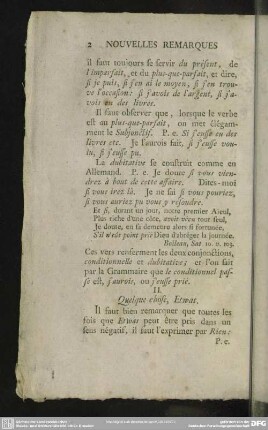 2 NOUVELLES REMARQUES
il faut toujours se servir du présent, de
l'imparfait, et du plus-que-parfait, et dire,
si je puis, si j'en ai le moyen, si j'en trou-
ve l'occasion: si j'avois de l'argent, si j'a-
vois eu des livres.
Il faut observer que, lorsque le verbe
est au plus-que-parfait, on met élégam-
ment le Subjonctif. P. e. Si j'eusse eu des
livres etc. Je l'aurois fait, si j'eusse vou-
lu, si j'eusse pu.
La dubitative se construit comme en
Allemand. P. e. Je doute si vous vien-
drez à bout de cette affaire. Dites-moi
si vous irez là. Je ne sai si vous pourriez,
si vous auriez pu vous y résoudre.
Et si, durant un jour, notre premier Aieul,
Plus riche d'une côte, avoit vécu tout seul,
Je doute, en sa demeure alors si fortunée,
S'il n'eût point prié Dieu d'abréger la journée.
Boileau, Sat. 10. v. 103.
Ces vers renferment les deux conjonctions,
conditionnelle et dubitative; et l'on fait
par la Grammaire que le conditionnel pas-
sé est, j'aurois, ou j'eusse prié.
II.
Quelque chose, Etwas.
Il faut bien remarquer que toutes les
fois que Etwas peut être pris dans un
sens négatif, il faut l'exprimer par Rien:
P. e.